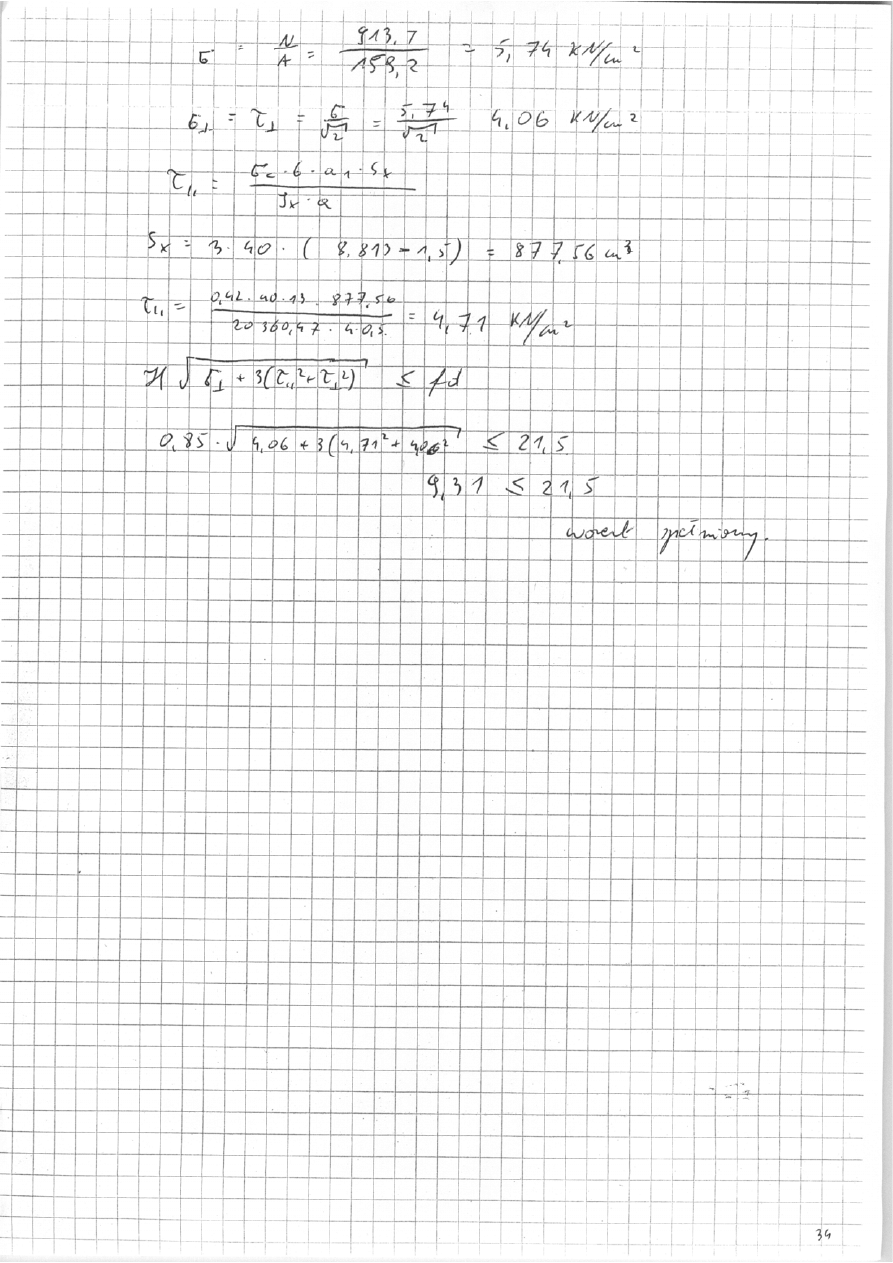 σ = N/A = 913,7/159,2 = 5,74 kN/cm²
σ⊥ = τ⊥ = σ/√2 = 5,74/√2 4,06 kN/cm²
τ,, = σc·b·a1·Sx / Jx·a
Sx = 3·40·(8,813-1,5) = 877,56 cm³
τ,, = 0,42·40·13·877,56 / 20360,47·4·0,5 = 4,71 kN/cm²
ϰ √σ⊥ + 3(τ,,² + τ⊥²) ≤ fd
0,85·√4,06 + 3(4,71² + 4,06² ≤ 21,5
9,31 ≤ 21,5
warunek spełniony.
34